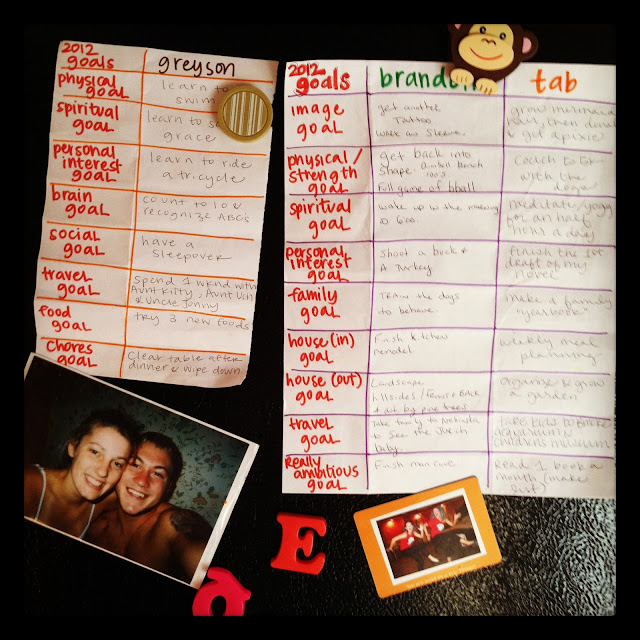 2012
goals
greyson
physical
goal
learn to
swim
spiritual
goal
learn to say
grace
personal
interest
goal
learn to ride
a tricycle
brain
goal
count to 10 &
recognize ABC's
social
goal
have a
sleepover
travel
goal
Spend 1 wknd with
Aunt Kitty, Aunt
& Uncle Jonny
food
goal
try 3 new foods
chores
goal
Clear table after
dinner & wipe down
2012
goals
brandon
tab
image
goal
get another
Tattoo
Work on Sleeve
grow mermaid
hair, then donate
& get a pixie
physical/
strength
goal
get back into
shape
Full game of bball
Couch to 5k
with the
dogs
spiritual
goal
wake up in the morning
@ 6:00
meditate/yoga
for an half
hour a day
personal
interest
goal
Shoot a buck &
A Turkey
finish the 1st
draft of my
novel
family
goal
Train the dogs
to behave
make a family
"yearbook"
house (in)
goal
Finish kitchen
remodel
weekly meal
planning
house (out)
goal
Landscape
hillsides/fence back
+ dirt by pine trees
organize & grow
a garden
travel
goal
Take family to Nebraska
to See the
baby
Take kids to
children's museum
Really
ambitious
goal
Finish man cave
Read 1 book a
month (make
list)
E
a